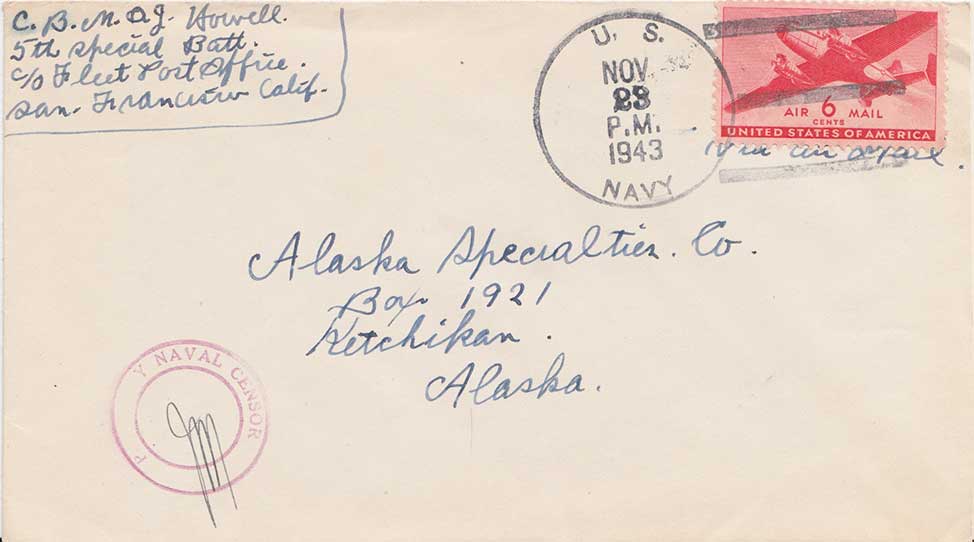 C. B. M. A. J. Howell.
5th special Batt.
c/o Fleet Post Office.
San. Francisco Calif.
U. S.
NOV
23
P.M.
1943
NAVY
AIR 6 MAIL
CENTS
UNITED STATES OF AMERICA
air
Alaska Specialties. Co.
Box 1921
Ketchikan.
Alaska.
P Y NAVAL CENSOR